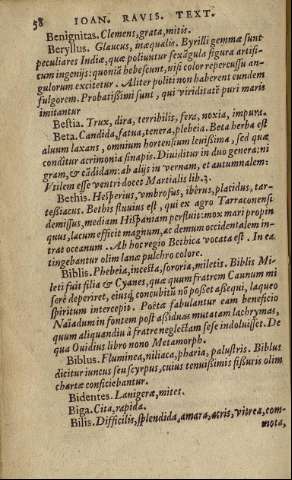 58 IOAN. RAVIS. TEXT.
Benignitas. Clemens, grata, mitis.
Beryllus. Glaucus, inæqualis. Byrilli gemmæ sunt
peculiares Indiæ, quæ poliuntur sexāgula figura artifi-
cum ingenijs: quoniā hebescunt, nisi color repercussu an-
gulorum excitetur. Aliter politi non haberent eundem
fulgorem. Probatissimi sunt, qui viriditatē puri maris
imitantur
Bestia. Trux, dira, terribilis, fera, noxia, impura.
Beta. Candida, fatua, tenera, plebeia. Beta herba est
aluum laxans, omnium hortensium leuissima, sed quæ
condītur acrimonia sinapis. Diuiditur in duo genera; ni
gram, & cādidam: ab alijs in vernam, et autumnalem:
Vtilem esse ventri docet Martialis lib. 3.
Bethis. Hesperius, vmbrosus, iberus, placidus, tar-
tessiacus. Bethis fluuius est, qui ex agro Tarraconensi
demissus, mediam Hispaniam perfluit: mox mari propin
quus, lacum efficit magnum, ac demum occidentalem in-
trat oceanum. Ab hoc regio Bethica vocata est. In ea
tingebantur olim lanæ pulchro colore.
Biblis. Phebeia, incesta, sororia, miletis. Biblis Mi-
leti fuit filia & Cyanes, quæ quum fratrem Caunum mi
serè deperiret, eiusq; concubitū nō posset assequi, laqueo
spiritum intercepit. Poëtæ fabulantur eam beneficio
Naiadum in fontem post assiduas mutatam lachrymas,
quum aliquandiu à fratre neglectam sese indoluisset. De
qua Ouidius libro nono Metamorph.
Biblus. Fluminea, niliaca, pharia, palustris. Biblus
dicitur iuncus seu scyrpus, cuius tenuissimis fissuris olim
chartæ conficiebantur.
Bidentes. Lanigeræ, mites.
Biga. Cita, rapida.
Bilis. Difficilis, splendida, amara, atris, vitrea, com-
mota,